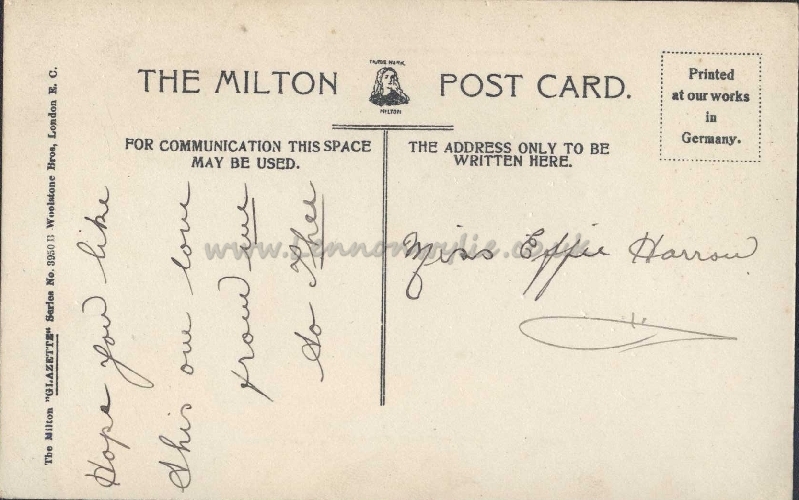 THE MILTON POST CARD.
TRADE MARK
MILTON
Printed
at our works
in
Germany.
FOR COMMUNICATION THIS SPACE
MAY BE USED.
THE ADDRESS ONLY TO BE
WRITTEN HERE.
The Milton "GLAZETTE" Series No. Woolstone Bros, London E. C.
Hope you like
this one love
from me
to Thee
Miss Effie Harrow
www.lennonwylie.co.uk